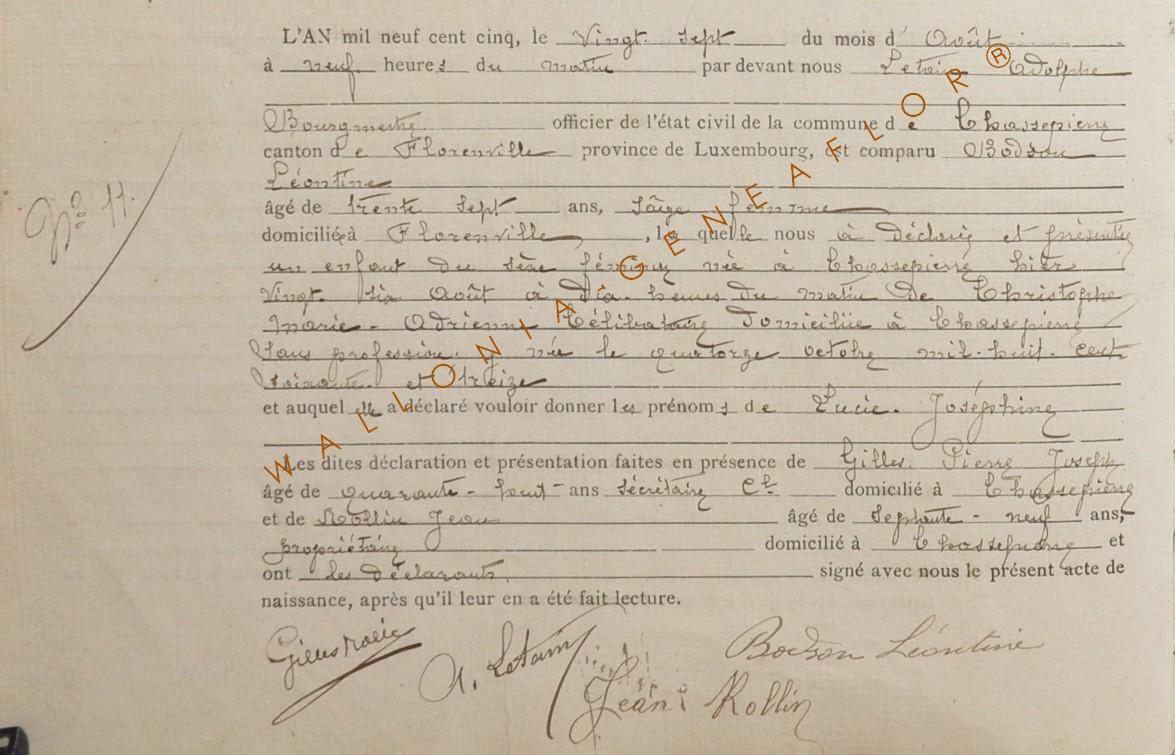 L'AN mil neuf cent cinq, le Vingt Sept du mois d' Août
à neuf heures du matin par devant nous Letain Adolphe
Bourgmestre officier de l'état civil de la commune de Chassepierre
canton de Florenville province de Luxembourg, est comparu Bodson
Léontine
âgé de trente Sept ans, Sage femme
domiciliée à Florenville, laquelle nous a déclaré et présenté
un enfant du sexe féminin née à Chassepierre hier
Vingt. Six Août à Dix. heures du matin de Christophe
Marie. Adrienne Célibataire domiciliée à Chassepierre
Sans profession. née le quatorze octobre mil-huit. cent
Soixante et treize
et auquel elle a déclaré vouloir donner les prénoms de Lucie. Joséphine
Les dites déclaration et présentation faites en présence de Gilles. Pierre Joseph
âgé de quarante-huit-ans Secrétaire Cl domicilié à Chassepierre
et de Rollin Jean âgé de Septante-neuf ans,
propriétaire domicilié à Chassepierre et
ont les déclarants, signé avec nous le présent acte de
naissance, après qu'il leur en a été fait lecture.
N° 11.
A. Letain Bodson Léontine
Jean Rollin
WALLONIA GENEAFLOR®